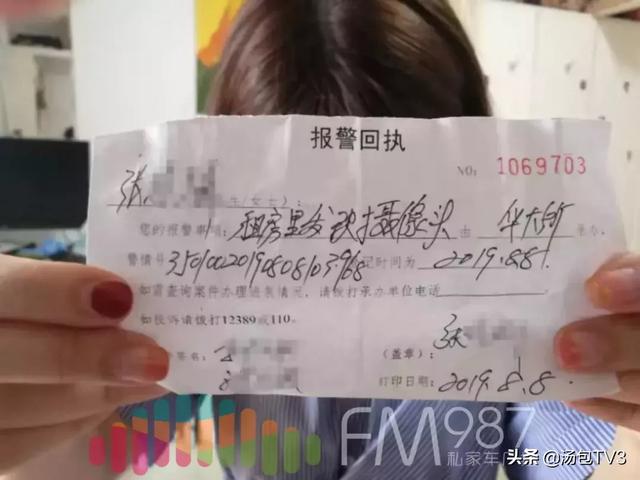 报警回执
NO: 1069703
张 生/女士):
您的报警事项: 租房里发现摄像头 由 华大所 承办,
警情号 3501002019080810 记时间为 2019.8.8.
如需查询案件办理进展情况,请拨打承办单位电话
如投诉请拨打12389或110。
签名: (盖章):
打印日期: 2019.8.8.
FM987
私家车
头条 @汤包TV3